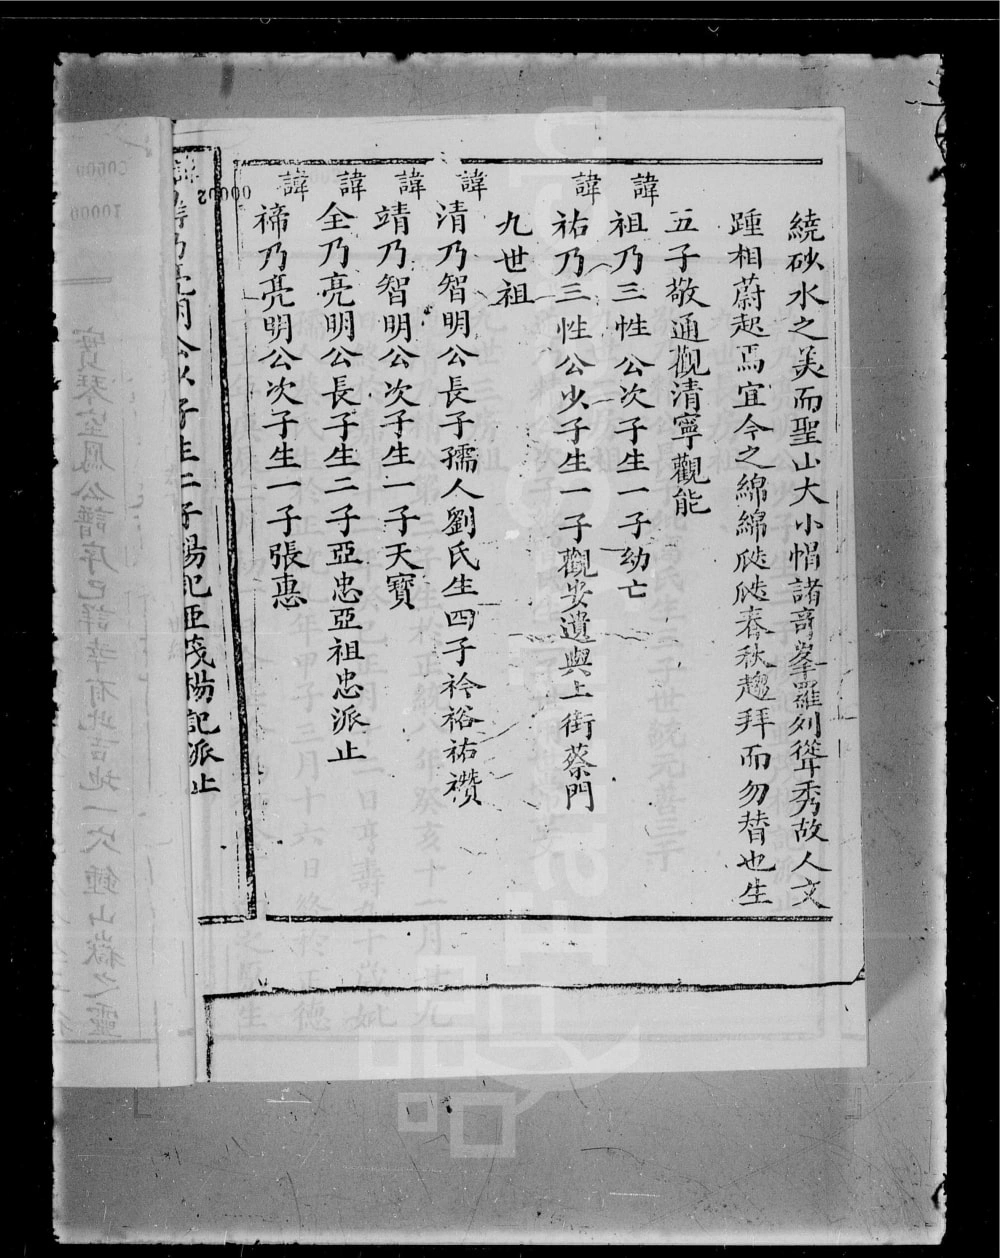 繞砂水之美而聖山大小帽諸奇峯羅列聳秀故人文
踵相蔚起焉宜今之綿綿瓞瓞春秋趨拜而勿替也生
五子敬通觀清寧觀能
諱祖乃三性公次子生一子幼亡
諱祐乃三性公少子生一子觀安遺與上街蔡門
九世祖
諱清乃智明公長子孺人劉氏生四子衿裕祐襸
諱靖乃智明公次子生一子天寶
諱全乃亮明公長子生二子亞忠亞祖忠派止
諱禘乃亮明公次子生一子張惠
00002
乃亮明公 子生二子楊 亞 楊記派止